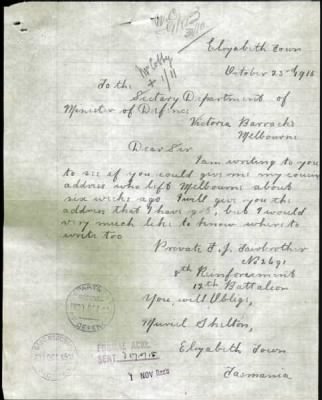 Elizabeth Town
October 23rd 1915
To the
Sectary Department of
Minister of Defince
Victoria Barracks
Melbourne
Dear Sir
I am writing to you
to see if you could give me my cousin
address who left Melbourne about
six weeks ago I will give you the
address that I have got, but I would
very much like to know where to
write too
Private F. J. Fairbrother
No 2691
8th Reinforcement
12th Battalion
You will Oblige,
Muriel Shelton,
Elizabeth Town
Tasmania
FORMAL ACKN.
SENT
1 NOV